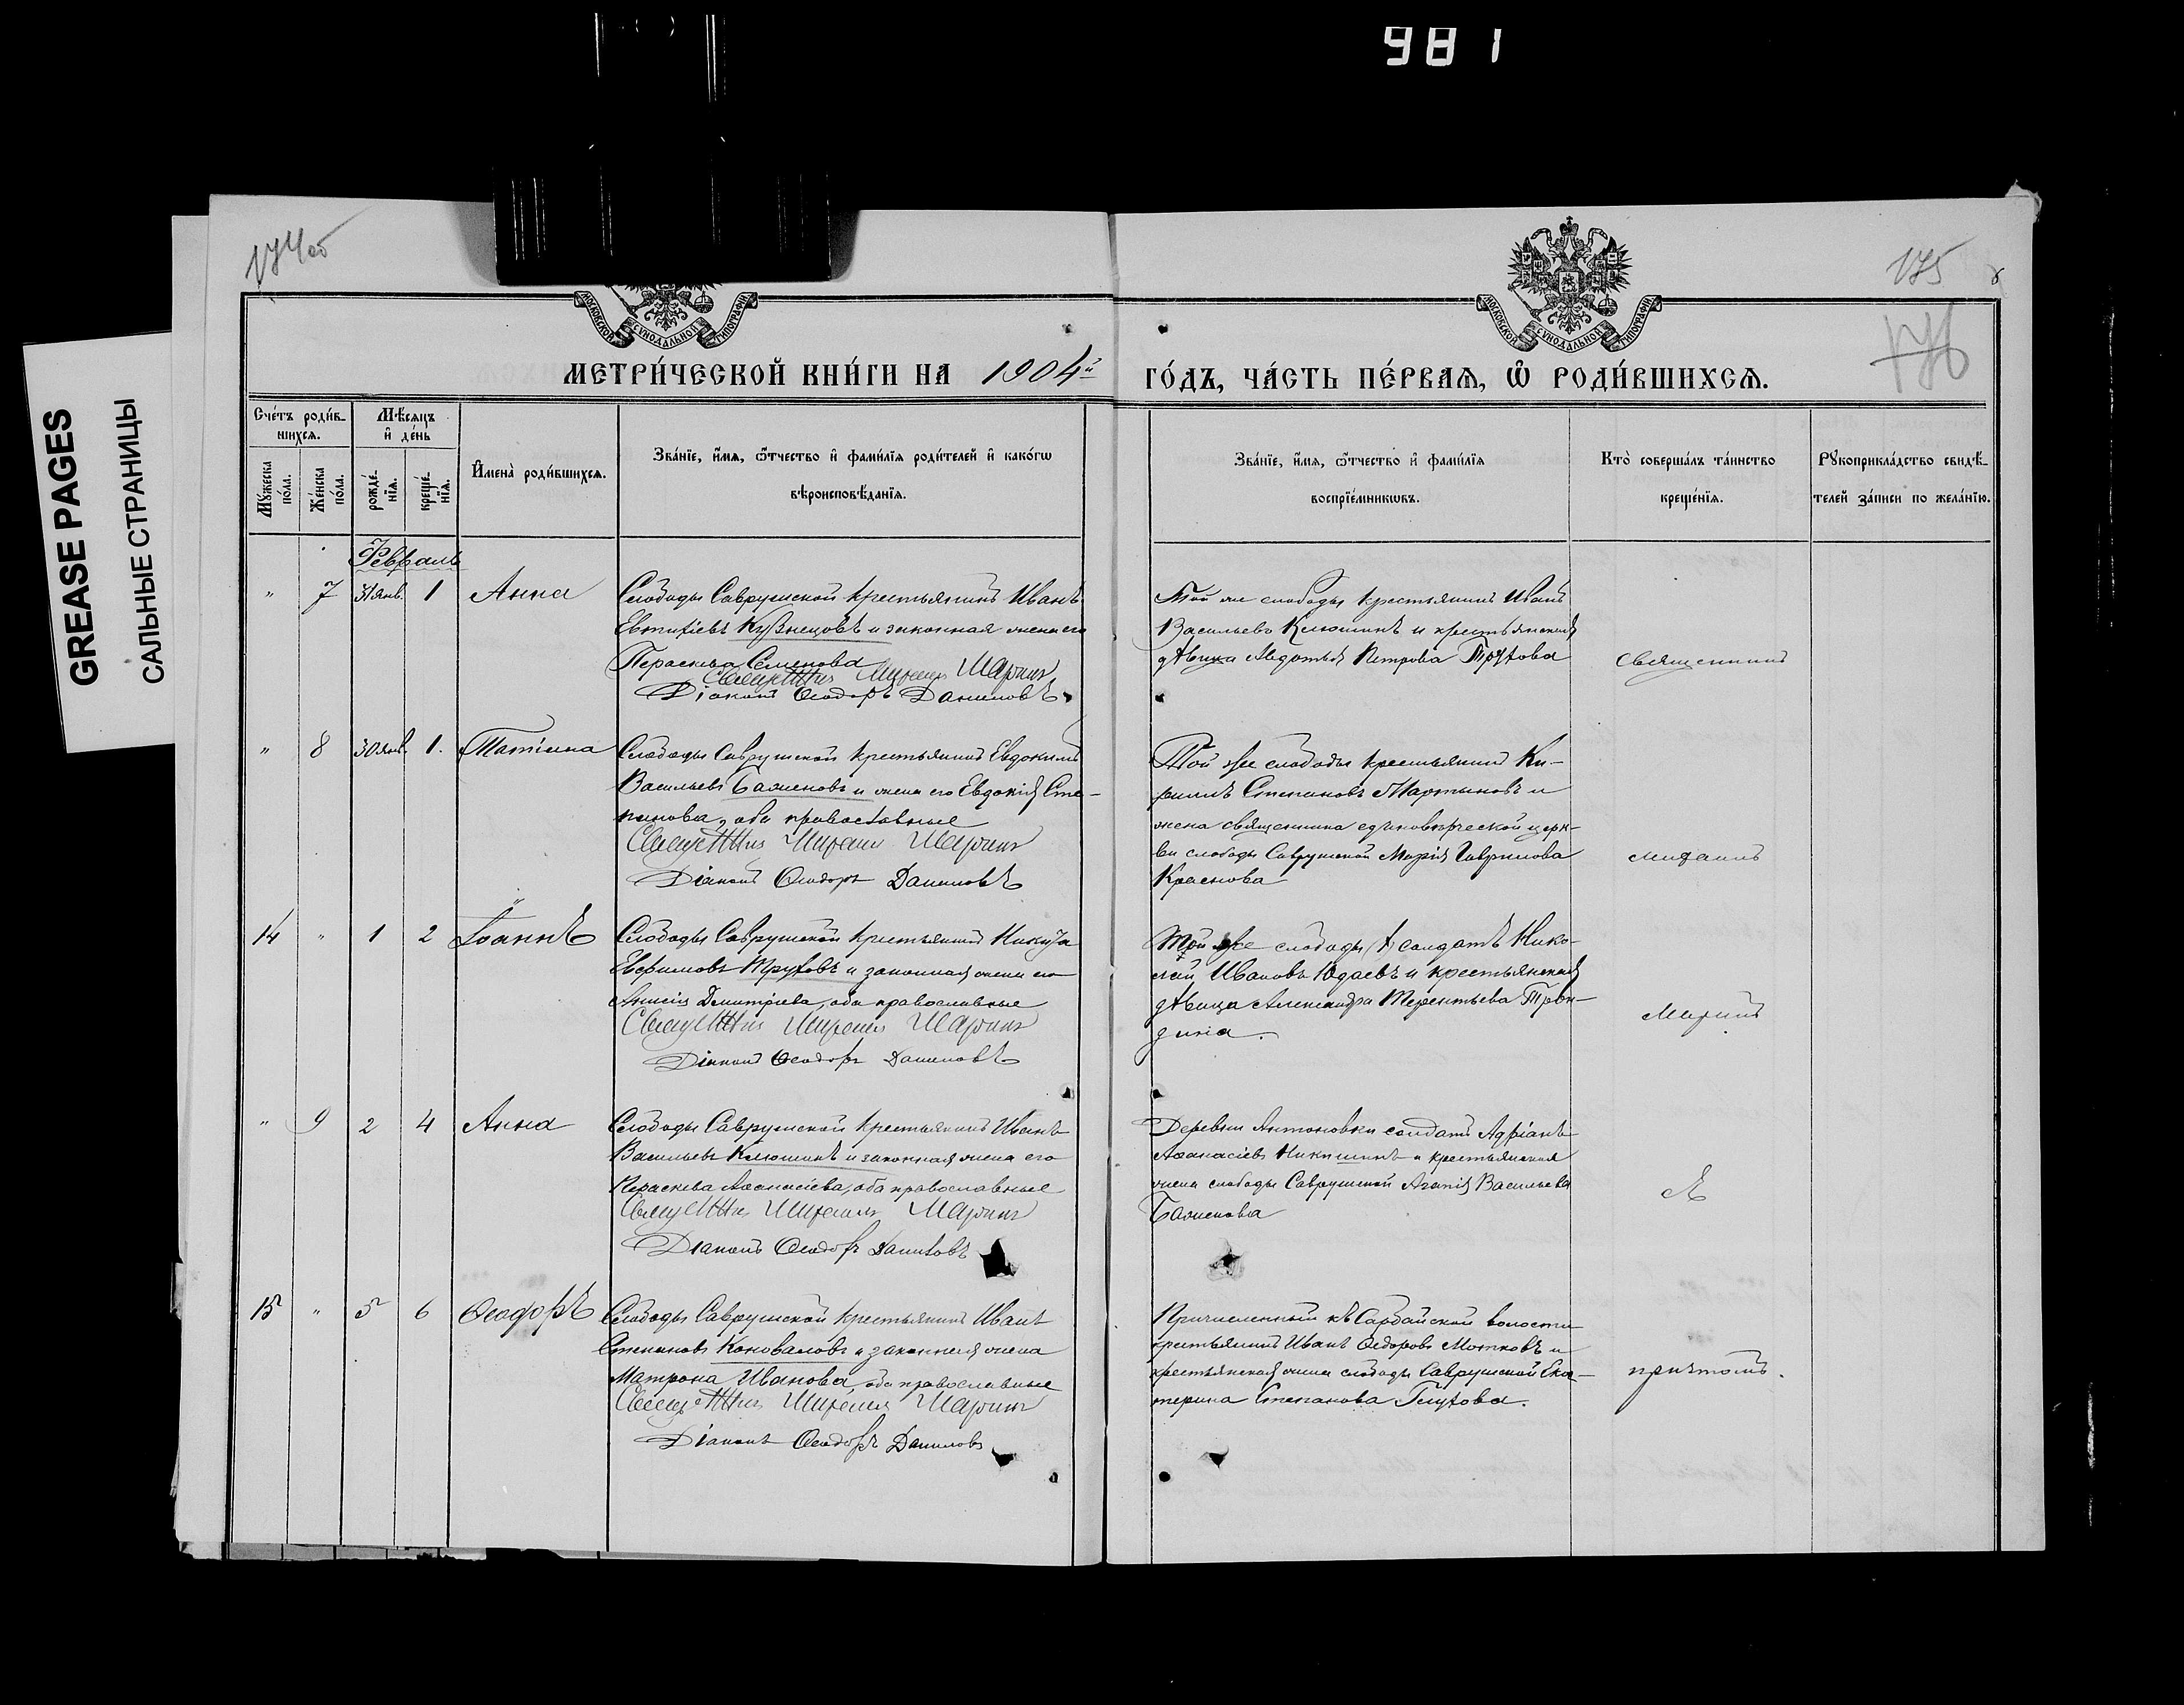 981
GREASE PAGES
САЛЬНЫЕ СТРАНИЦЫ
174об
175
176
МОСКОВСКОЙ СѴНОДАЛЬНОЙ ТИПОГРАФІИ
МОСКОВСКОЙ СѴНОДАЛЬНОЙ ТИПОГРАФІИ
МЕТРИ́ЧЕСКОЙ КНИ́ГИ НА 1904й ГО́ДЪ, ЧА́СТЬ ПЕ́РВАѦ, Ѽ РОДИ́ВШИХСѦ.
Сче́тъ роди́в-
шихсѧ.
Мѣ́сяцъ
и҆ де́нь
Мꙋ́жеска по́ла.
Же́нска по́ла.
рожде́-
нїѧ.
креще́-
нїѧ.
И҆мена̀ роди́вшихсѧ.
Зва́нїе, и҆́мѧ, ѻ҆́тчество и҆ фами́лїѧ роди́телей и҆ како́гѡ
вѣроисповѣ́данїѧ.
Зва́нїе, и҆́мѧ, ѻ҆́тчество и҆ фами́лїѧ
воспрїе́мникѡвъ.
Кто̀ соверша́лъ та́инство
креще́нїѧ.
Рꙋкоприкла́дство свидѣ́-
телей за́писи по жела́нїю.
Февраль
" 7 31 янв. 1 Анна
Слободы Саврушской крестьянинъ Иванъ
Евтихіевъ Кузнецовъ и законная жена его
Параскева Семенова
Священникъ Михаилъ Маринъ
Діаконъ Ѳеодоръ Даниловъ
Той же слободы крестьянинъ Иванъ
Васильевъ Клюшинъ и крестьянская
дѣвица Евдотья Петрова Трухова
Священникъ
" 8 30 янв. 1. Татіана
Слободы Саврушской крестьянинъ Евдокимъ
Васильевъ Баженовъ и жена его Евдокія Сте-
панова, оба православные
Священникъ Михаилъ Маринъ
Діаконъ Ѳеодоръ Даниловъ
Той же слободы крестьянинъ Ки-
риллъ Степановъ Мартыновъ и
жена священника единовѣрческой церк-
ви слободы Саврушской Марія Гаврилова
Краснова
Михаилъ
14 " 1 2 Іоаннъ
Слободы Саврушской крестьянинъ Никита
Евфимовъ Труховъ и законная жена его
Анисія Димитріева, оба православные
Священникъ Михаилъ Маринъ
Діаконъ Ѳеодоръ Даниловъ
Той же слободы солдатъ Нико-
лай Ивановъ Юдаевъ и крестьянская
дѣвица Александра Терентьева Трон-
дина.
Маринъ
" 9 2 4 Анна
Слободы Саврушской крестьянинъ Иванъ
Васильевъ Клюшинъ и законная жена его
Параскева Аѳанасіева, оба православные
Священникъ Михаилъ Маринъ
Діаконъ Ѳеодоръ Даниловъ
Деревни Антоновки солдатъ Адріанъ
Аѳанасіевъ Никишинъ и крестьянская
жена слободы Саврушской Агапія Васильева
Баженова
съ
15 " 5 6 Ѳеодоръ
Слободы Саврушской крестьянинъ Иванъ
Степановъ Коноваловъ и законная жена
Матрона Иванова, оба православные
Священникъ Михаилъ Маринъ
Діаконъ Ѳеодоръ Даниловъ
Причисленный къ Сарбайской волости
крестьянинъ Иванъ Ѳедоровъ Мотковъ и
крестьянская жена слободы Саврушской Ека-
терина Степанова Глухова.
причтомъ.